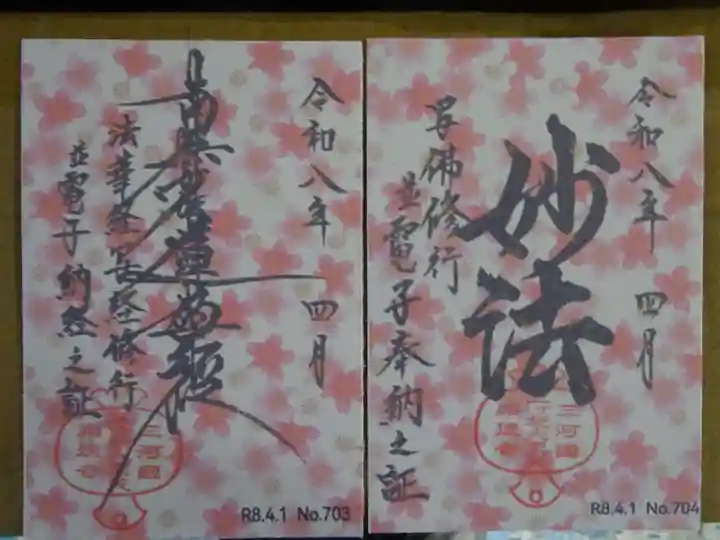 令和八年 四月
南無妙法蓮華経
法華経写経修行
並電子納経之証
R8.4.1 No.703
令和八年 四月
妙法
写佛修行
並電子奉納之証
三河國
R8.4.1 No.704